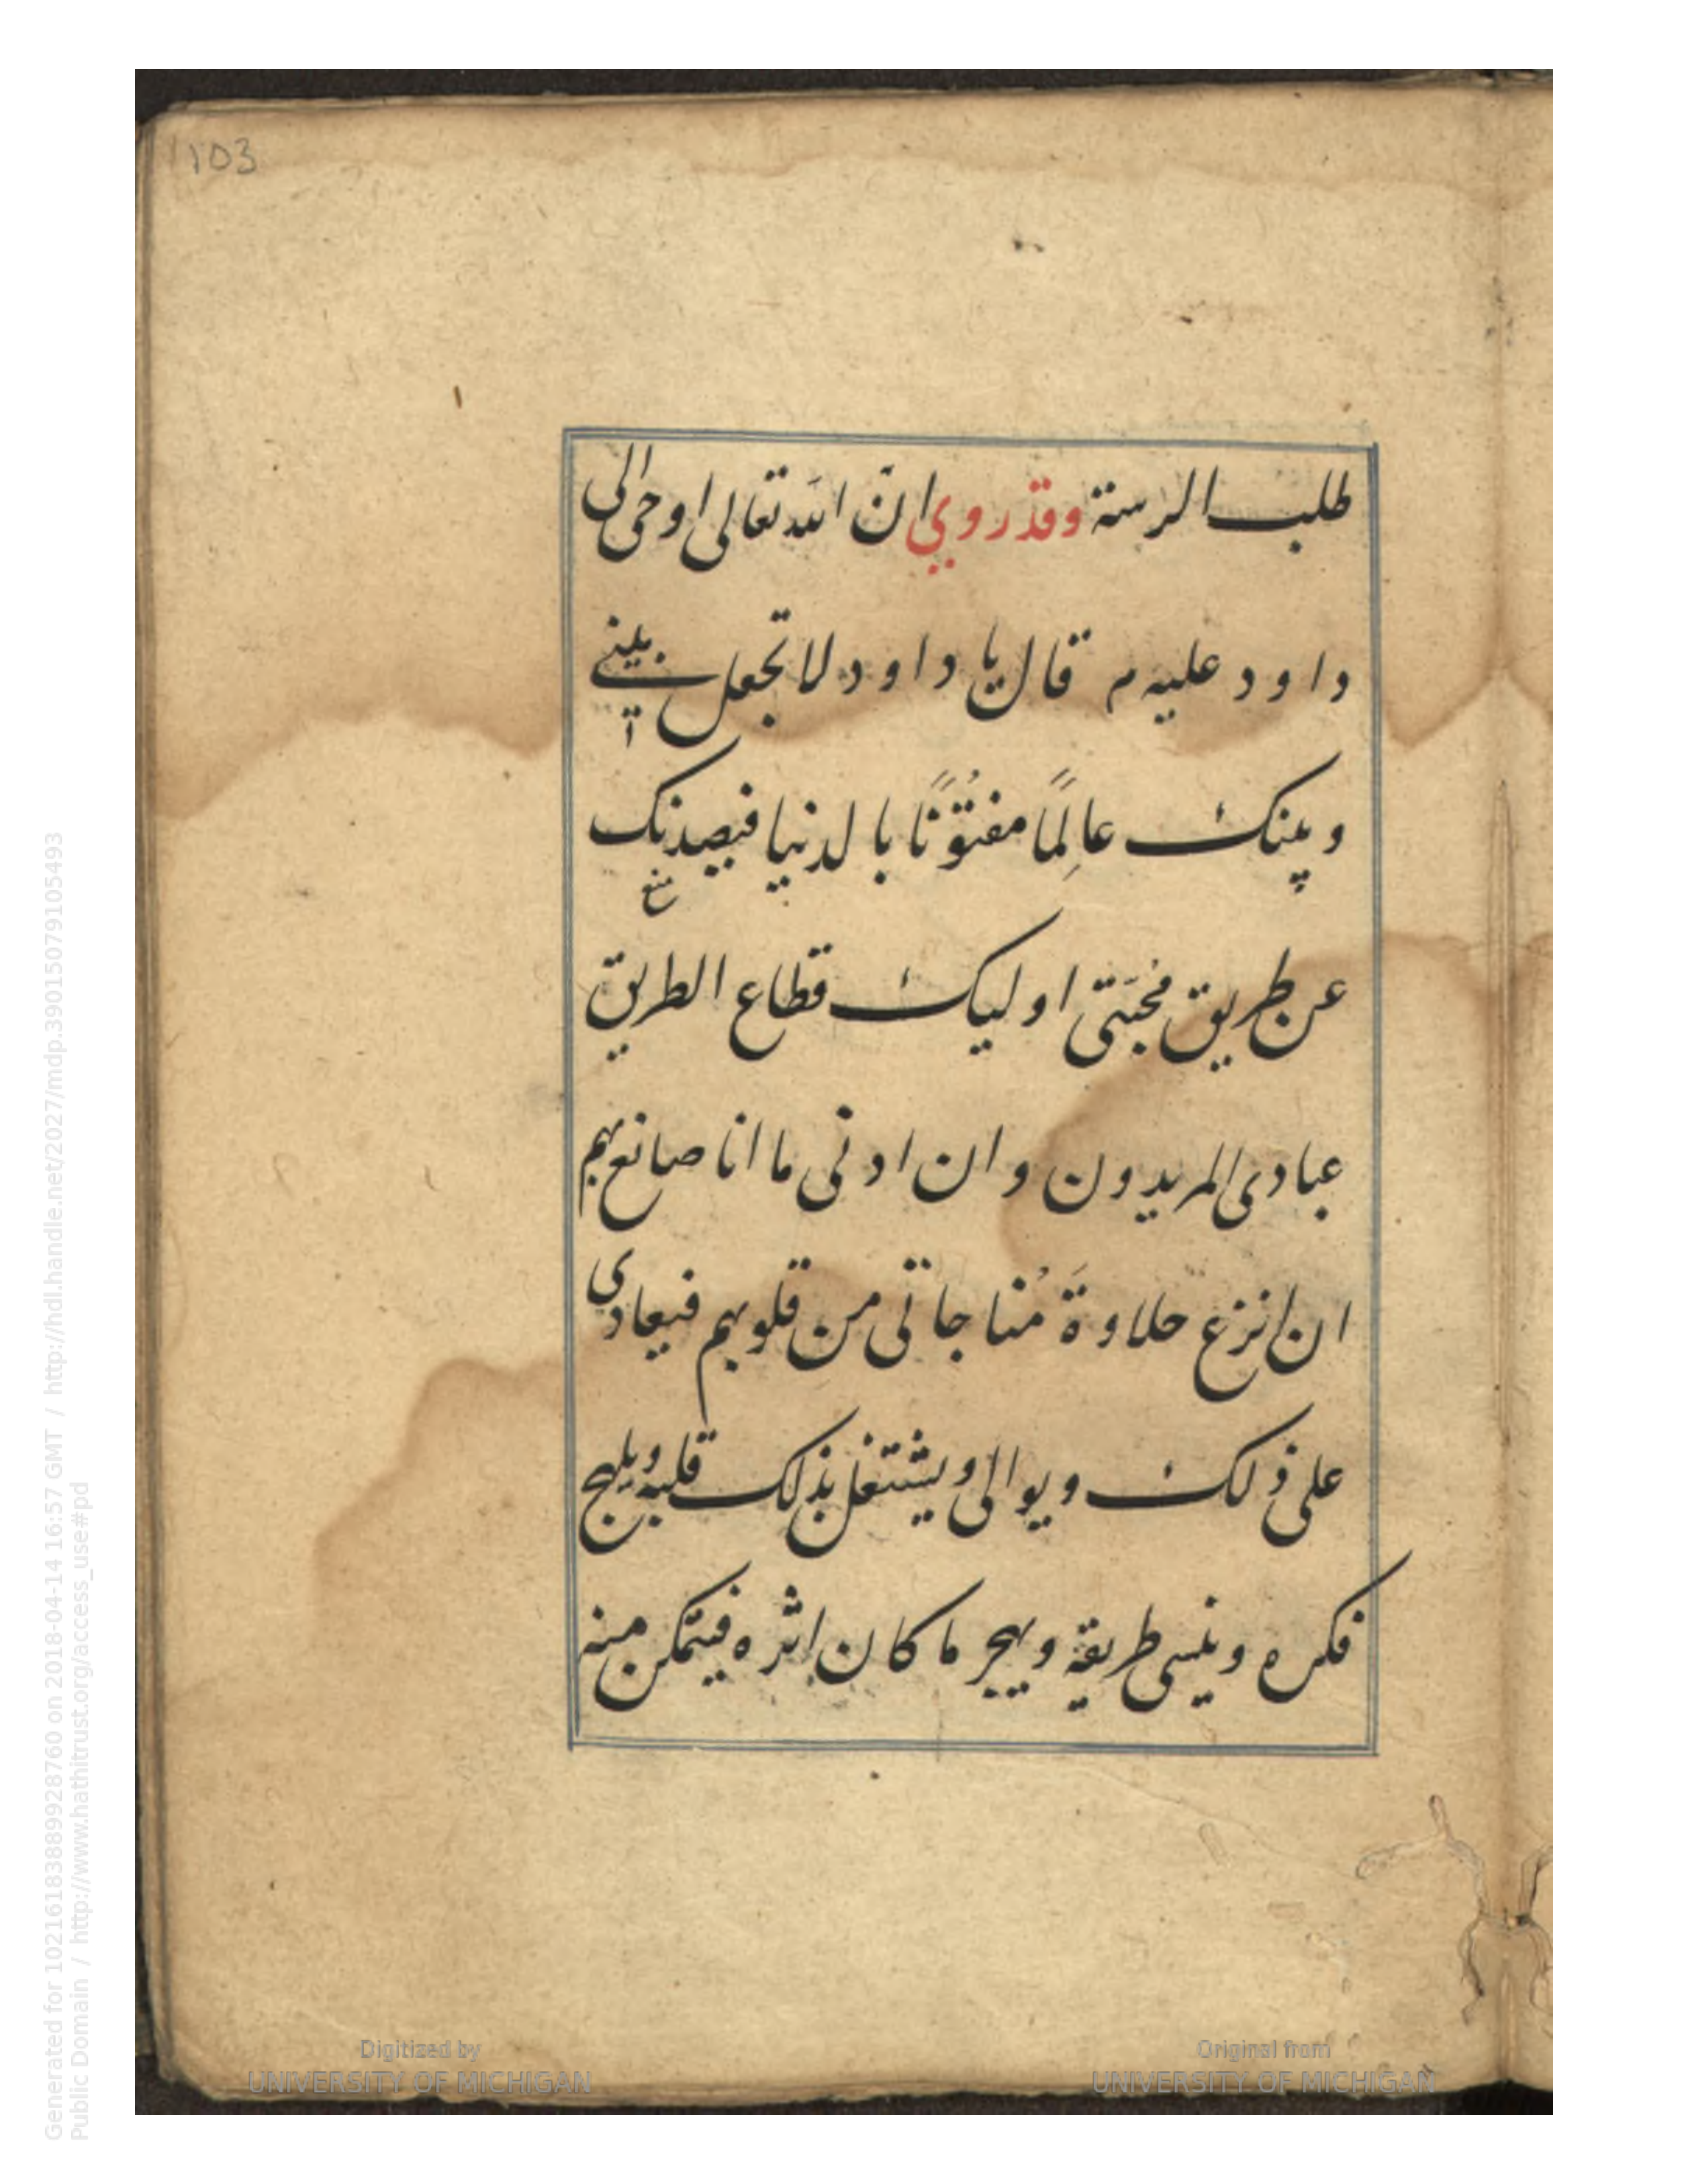 103
طلب الرستة وقد روي انّ الله تعالى اوحى الى
داود عليه م قال يا داود لا تجعل بيني
وبينك عالِمًا مفتُوْنًا بالدنيا فيصدنك
عن طريق محبَتى اوليك قطاع الطريق
عبادى المريدون وان ادنى ما انا صانع بهم
ان انزع حلاوةَ مُناجاتى من قلوبهم فيعادى
على ذلك ويوالى ويشتغل بذلك قلبه ويلهج
فكره وينسى طريقة ويهجر ما كان اثره فيتمكن منه
Digitized by
UNIVERSITY OF MICHIGAN
Original from
UNIVERSITY OF MICHIGAN
Generated for 10216183889928760 on 2018-04-14 16:57 GMT / http://hdl.handle.net/2027/mdp.39015079105493
Public Domain / http://www.hathitrust.org/access_use#pd